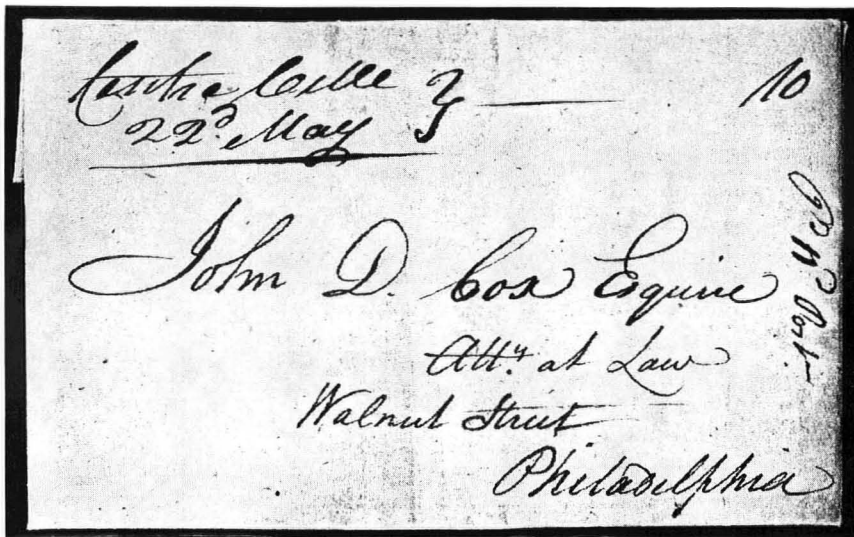 Centre Ville } — 10
22d May
John D. Cox Esquire
Atty. at Law
Walnut Street
Philadelphia